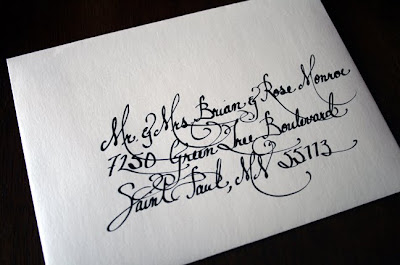 Mr. & Mrs. Brian & Rose Monroe
7250 Green Tree Boulevard
Saint Paul, MN 55113